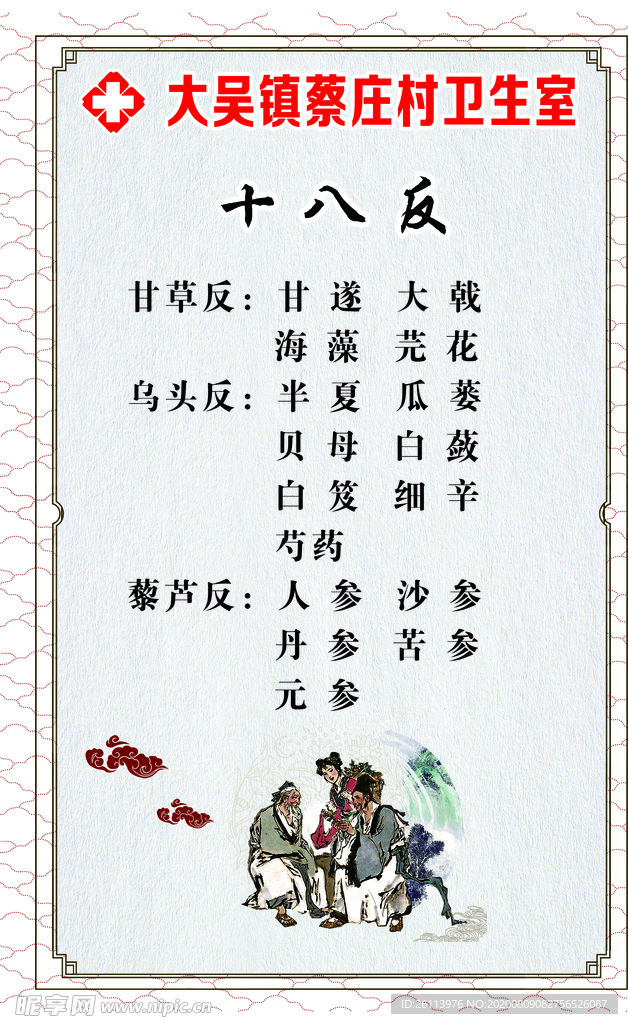 大吴镇蔡庄村卫生室
十八反
甘草反：甘遂 大戟
海藻 芫花
乌头反：半夏 瓜蒌
贝母 白蔹
白笈 细辛
芍药
藜芦反：人参 沙参
丹参 苦参
元参
昵享网 www.nipic.cn
ID:26113976 NO:20200809082756526087